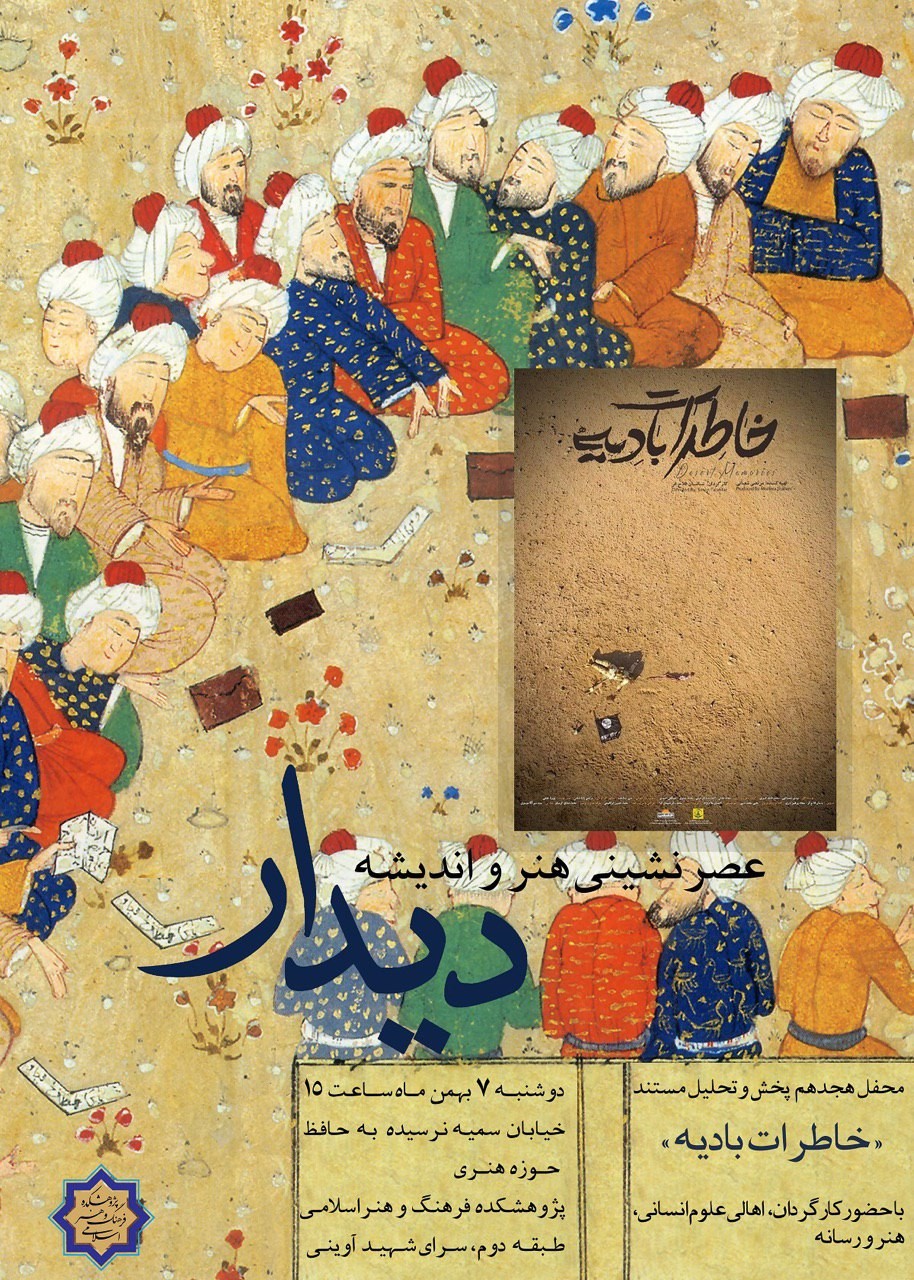 خاطرات بادیه
Desert Memories
عصرنشینی هنر و اندیشه
دیدار
محفل هجدهم پخش و تحلیل مستند
«خاطرات بادیه»
با حضور کارگردان، اهالی علوم انسانی،
هنر و رسانه
دوشنبه ۷ بهمن ماه ساعت ۱۵
خیابان سمیه نرسیده به حافظ
حوزه هنری
پژوهشکده فرهنگ و هنر اسلامی
طبقه دوم، سرای شهید آوینی
پژوهشکده
فرهنگ و هنر
اسلامی